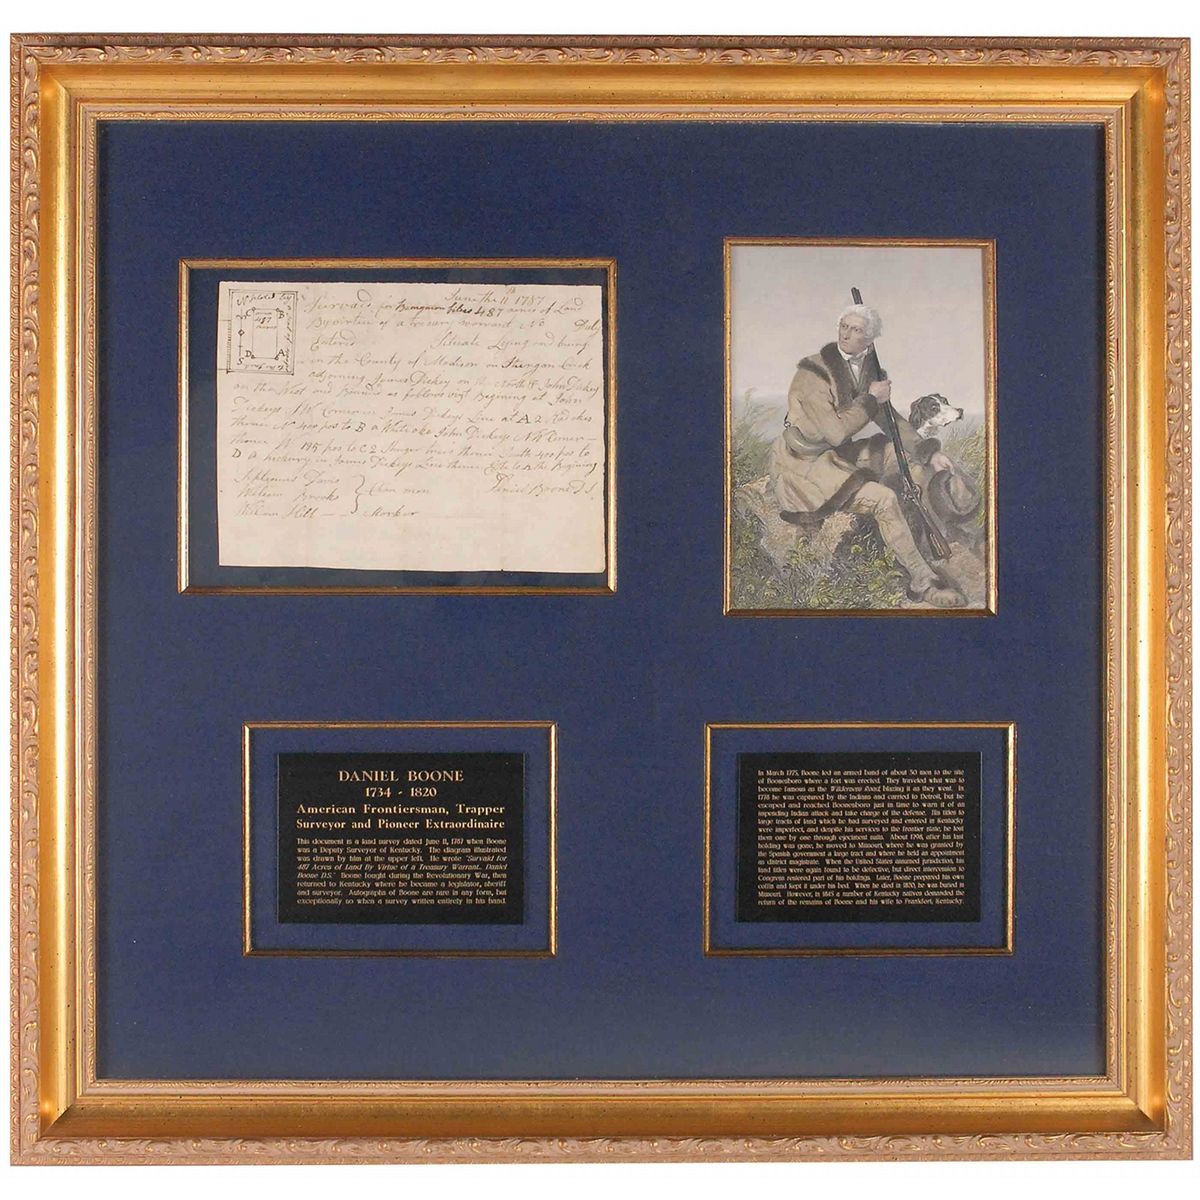 June the 11th 1787
Survaid for 487 acres of Land
By virtue of a tresury warrant Duly
Entered Situate Lying and being
in the County of Madison on Creek
adjoining James Dickey on the North & John Dickey
on the West and Bounds as follows viz Begining at John
Dickeys NW Corner in James Dickeys Line at A 2
thence N 400 pos to B a White oke John Dickeys NW Corner
thence W 195 pos to C 2 trees thence South 400 pos to
D a hickory in James Dickeys Line thence E to the Begining
Davis
William Brooks } Chan men Daniel Boone D S
William Hill - - Marker
N
C B
487
acres
D A
S
DANIEL BOONE
1734 - 1820
American Frontiersman, Trapper
Surveyor and Pioneer Extraordinaire
This document is a land survey dated June 11, 1787 when Boone
was a Deputy Surveyor of Kentucky. The diagram illustrated
was drawn by him at the upper left. He wrote "Survaid for
487 Acres of Land By Virtue of a Treasury Warrant. Daniel
Boone D.S." Boone fought during the Revolutionary War, then
returned to Kentucky where he became a legislator, sheriff
and surveyor. Autographs of Boone are rare in any form, but
exceptionally so when a survey written entirely in his hand
In March 1775, Boone led an armed band of about 30 men to the site
of Boonesboro where a fort was erected. They traveled what was to
become famous as the Wilderness Road, blazing it as they went. In
1778 he was captured by the Indians and carried to Detroit, but he
escaped and reached Boonesboro just in time to warn it of an
impending Indian attack and take charge of the defense. His titles to
large tracts of land which he had surveyed and entered in Kentucky
were imperfect, and despite his services to the frontier state, he lost
them one by one through ejectment suits. About 1798, after his last
holding was gone, he moved to Missouri, where he was granted by
the Spanish government a large tract and where he held an appointment
as district magistrate. When the United States assumed jurisdiction, his
land titles were again found to be defective, but direct intercession to
Congress restored part of his holdings. Later, Boone prepared his own
coffin and kept it under his bed. When he died in 1820, he was buried in
Missouri. However, in 1845 a number of Kentucky natives demanded the
return of the remains of Boone and his wife to Frankfort, Kentucky.